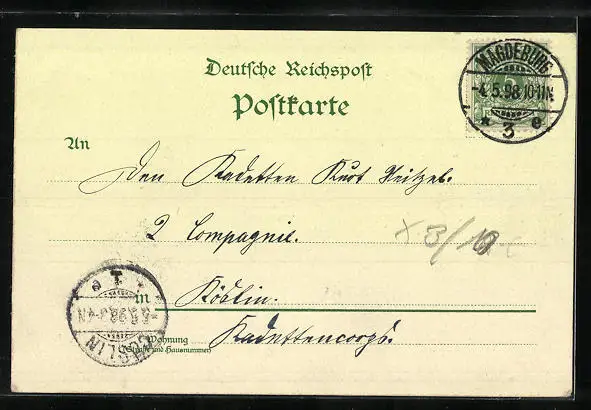 Deutsche Reichspost
Postkarte
MAGDEBURG
-4.5.98.10-11N.
* 3 e
5
An
Den Kadetten Kurt
2 Compagnie.
x 3/10
in Köslin.
Wohnung
(Straße und Hausnummer)
Kadettencorps.
CÖSLIN